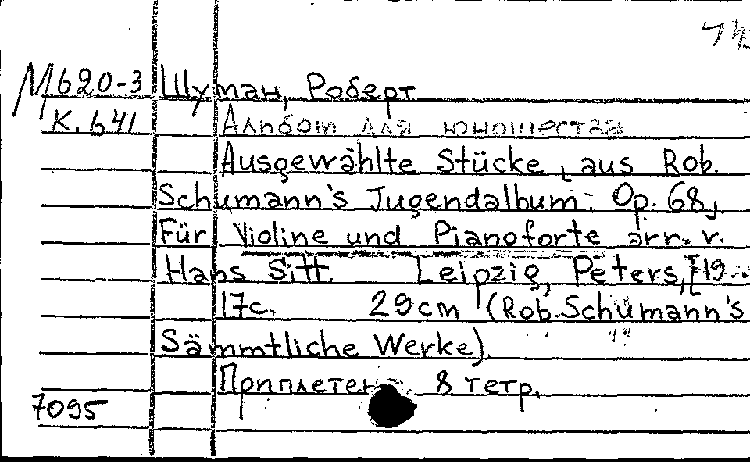 М620-3 Шуман, Роберт
К. 641 Альбом для юношества
Ausgewählte Stücke, aus Rob.
Schumann's Jugendalbum: Op. 68,
Für Violine und Pianoforte arr. v.
Hans Sitt. Leipzig, Peters, [19..
17с. 29cm (Rob. Schumann's
Sämmtliche Werke).
Приплетен 8 тетр.
7095